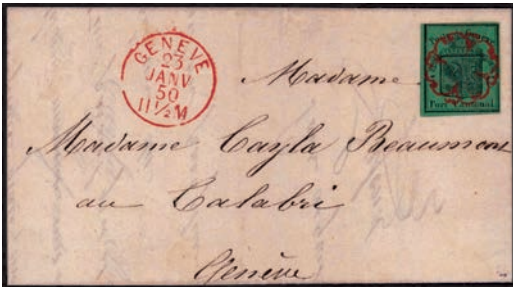 GENEVE
23
JANV
50
11½M
Port Cantonal
Madame
Madame Cayla Beaumont
au Calabri
Genève